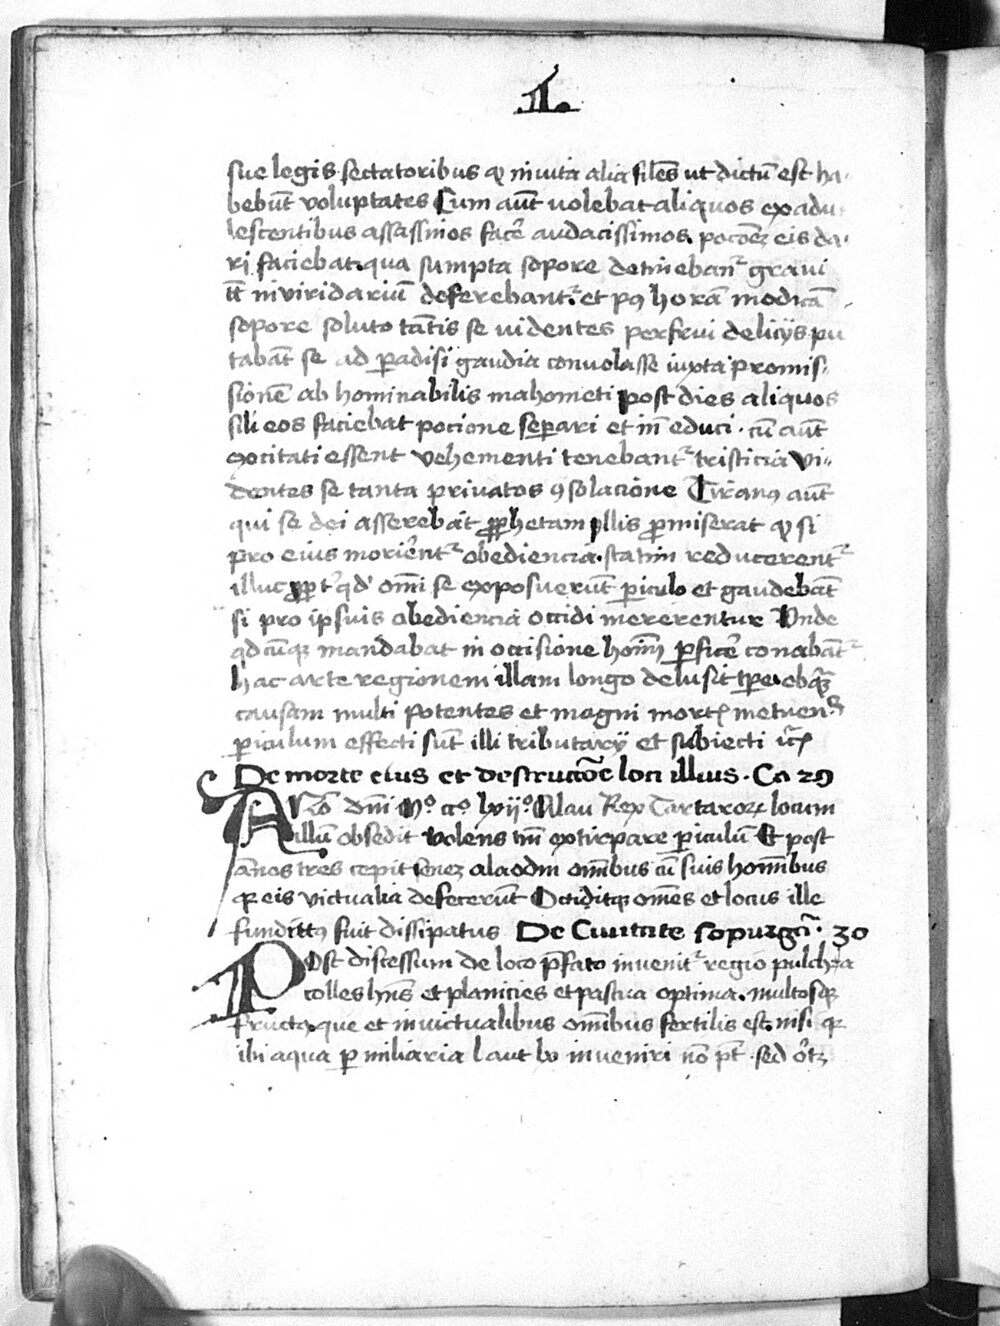 .1.
sue legis sectatoribus qꝫ in vita alia siles̄ ut dictū est ha-
bebūt voluptates Cum aūt volebat aliquos ex adu-
lescentibus assassinos facē audacissimos. pocōeꝫ eis da-
ri faciebat. qua sumpta sopore detinebanᵗ gravi
tc̄ in viridariū deferebantᵗ. et pꝰ horā modicā
sopore soluto tātis se videntes perfrui delicijs pu
tabāt se ad ꝑadisi gaudia convolasse iuxta promis-
sionē ab hominabilis mahometi post dies aliquos
sili eos faciebat pocione seꝑari et in̄ educi. cū aūt
excitati essent vehementi tenebantᵗ tristicia vi-
dentes se tanta privatos ꝯsolacione Tiranꝰ aūt
qui se dei asserebat ꝓphetam illis ꝓmiserat qꝫ si
pro eius moriēntᵗ obediencia. statim reducerentᵗ
illuc ꝓptᵉ qd' om̄i se exposuerūt ꝑiculo et gaudebāt
si pro ipsuis obediencia occidi mererentur Unde
qdcūqꝫ mandabat in occisione homı̄m ꝑficē conabāt
hac arte regionem illam longo delusit tp̄e. ob qᷓꝫ
causam multi potentes et magni mortꝭ metuen
ꝑiculum effecti sūt illi tributarij et subiecti
De morte eius et destructōe loci illius. Ca 29
Año dn̄i Mº. ccº. lxijº. Alau Rex Tartaroꝝ locum
illū obsedit volens tm̄ extirpare ꝑiculū Et post
an̄os tres cepit senez alaodin om̄ibus cū suis hom̄ibus
qꝛ eis victualia defecerūt Occiditqꝫ om̄es et locus ille
fundittꝰ fuit dissipatus De Civitate sopurgā. 30
Post discessum de loco p̄fato invenitᵗ regio pulchra
colles hn̄s et planicies et pascua optima. multosqꝫ
fructꝰ. que et in victualibus om̄ibus fertilis est. nisi qꝛ
ibi aqua ꝑ miliaria l aut lx inveniri nō pt̄. sed oꝫ